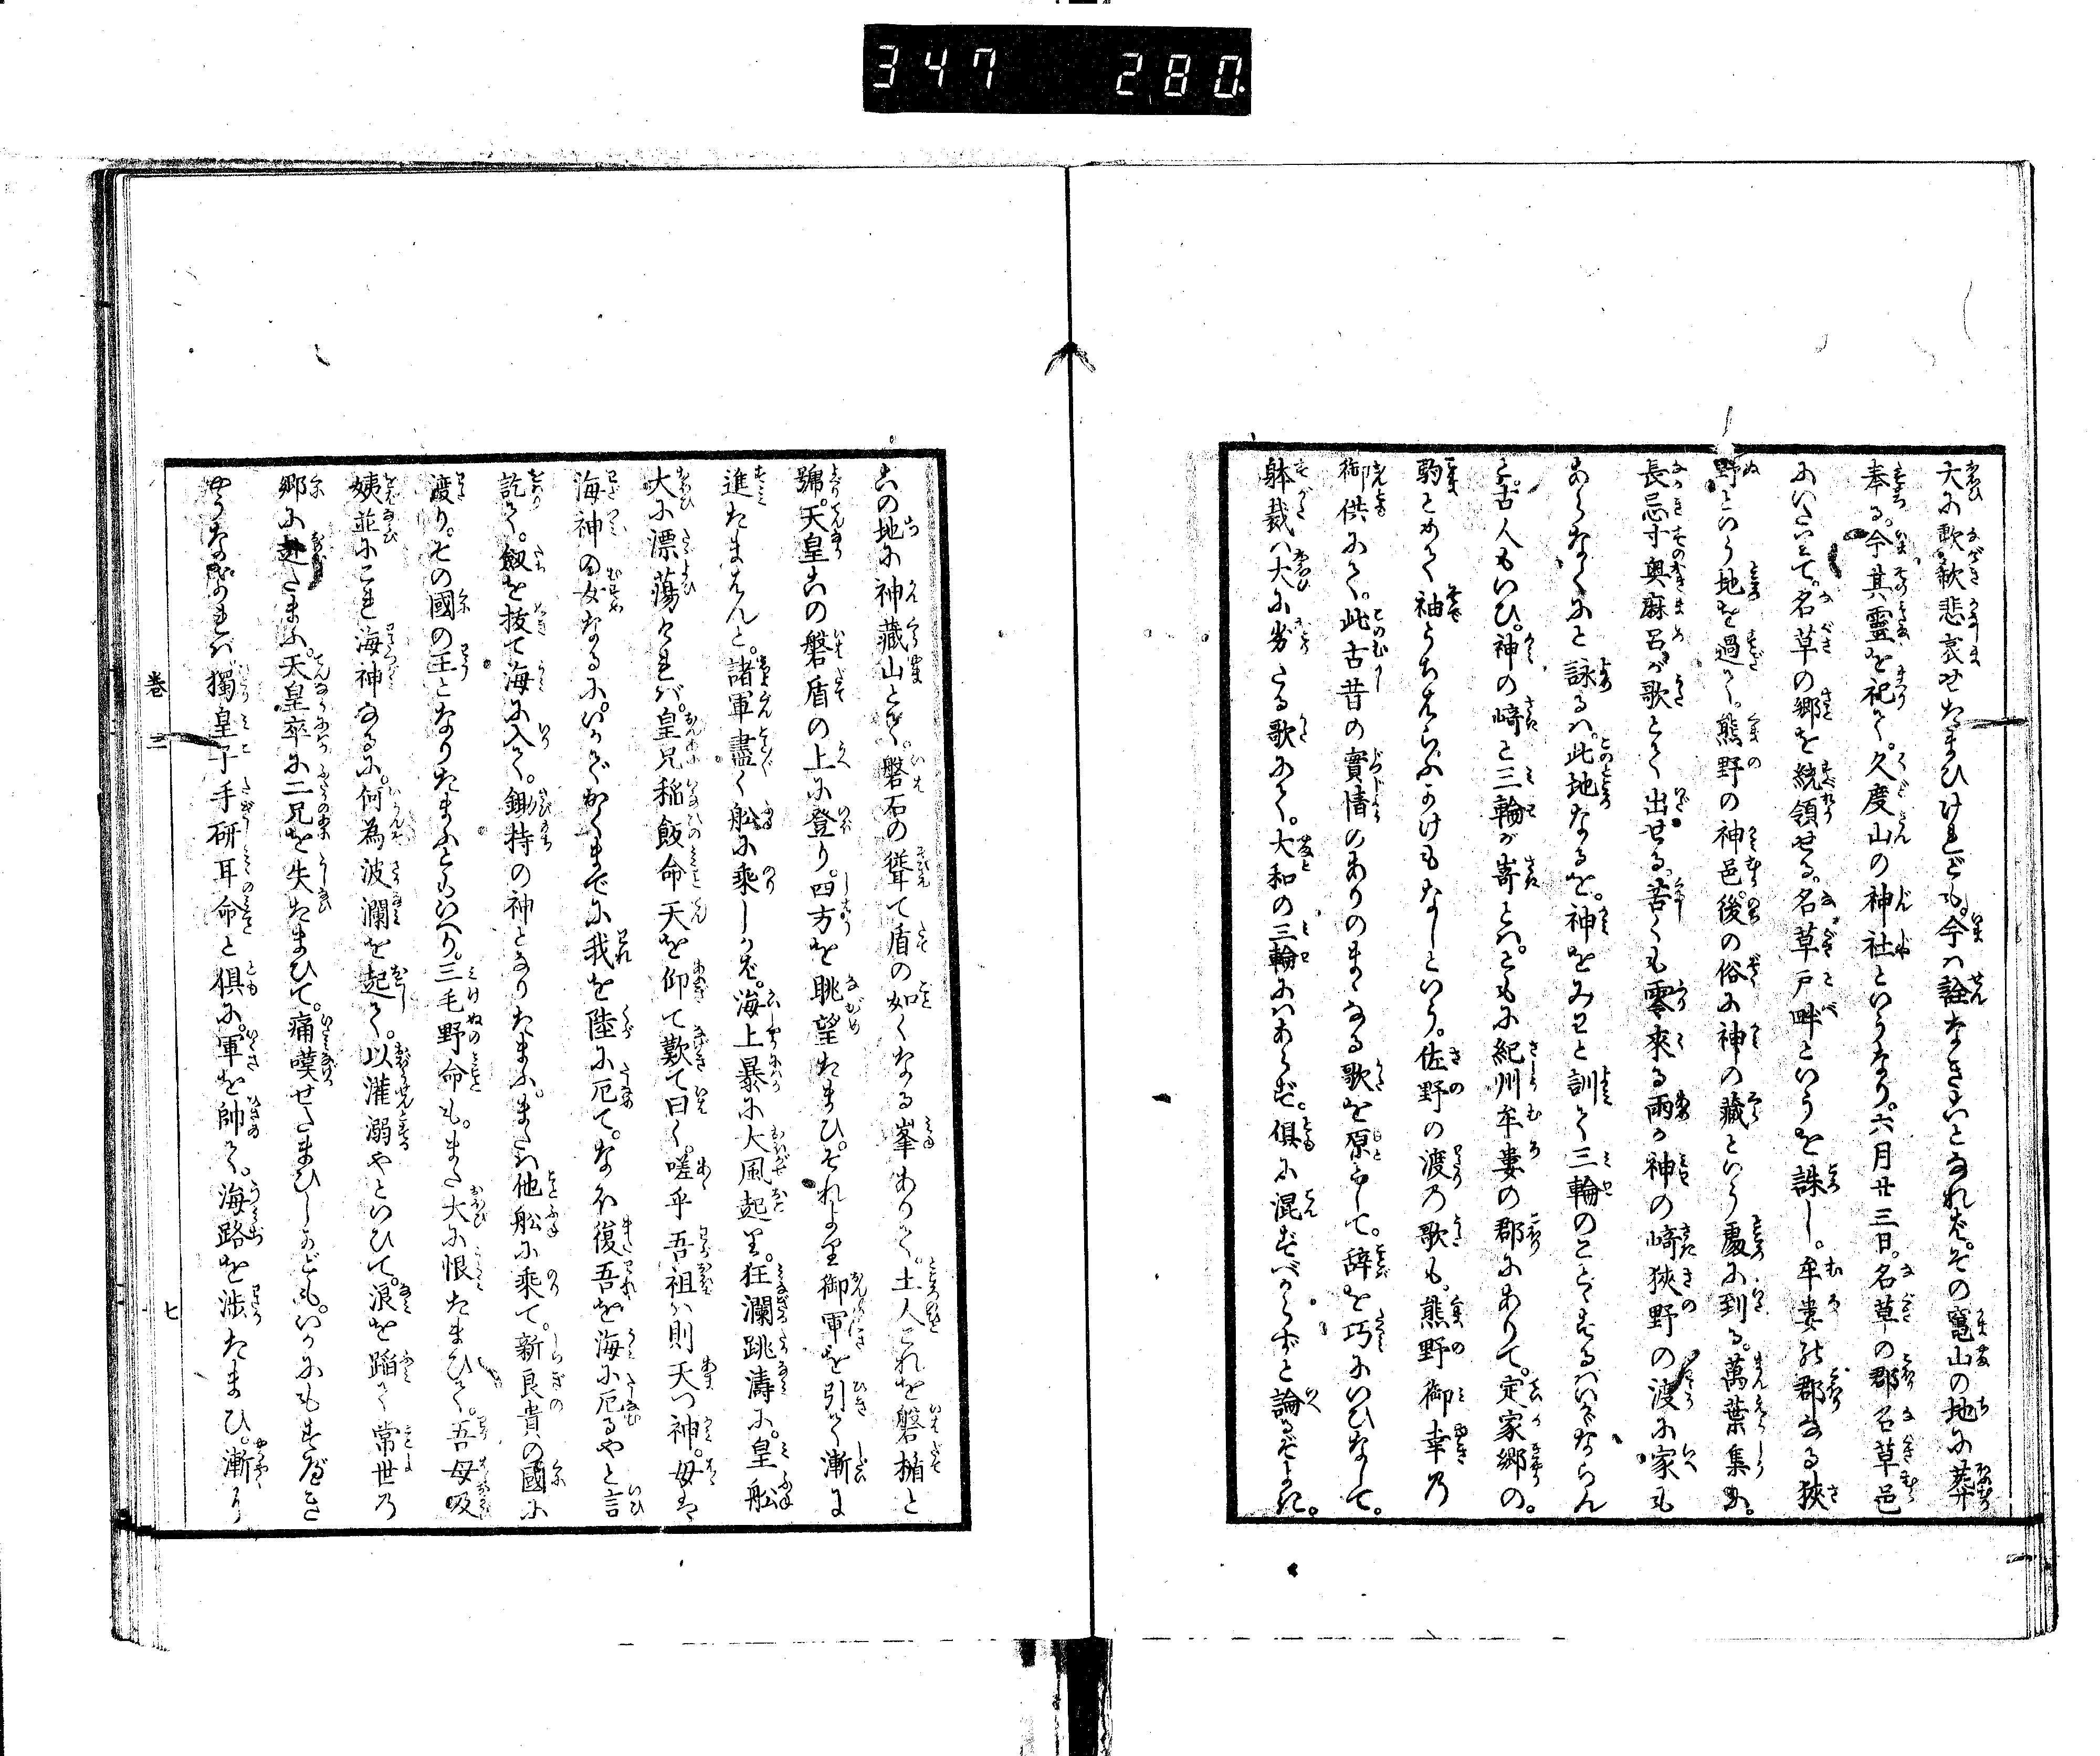 347 280
大に歎歎悲哀せたまひけれども。今ハ詮なきことなれば。その竃山の地に葬
奉る。今其霊を祀て。久度山の神社といふなり。六月廿三日。名草の郡名草邑
にいたりて。名草の郷を統領せる。名草戸畔といふを誅し。牟婁の郡なる狹
野といふ地を過て。熊野の神邑。後の俗に神の藏といふ處に到る。萬葉集に。
長忌寸奥麻呂が歌とて出せる。苦くも零來る雨か神の﨑狹野の渡に家も
あらなくにと詠るハ。此地なるを。神をみわと訓て三輪のことゝするハいかならん
と。古人もいひ。神の﨑と三輪が嵜とハ。ともに紀州牟婁の郡にありて。定家郷の。
駒とめて袖うちはらふかけもなしといふ。佐野の渡乃歌も。熊野御幸乃
御供にて。此古昔の實情のありのまゝなる歌を原として。辞を巧にいひなして。
躰裁ハ大に劣たる歌にて。大和の三輪にハあらず。俱に混ずべからずと論るぞよき。
此の地に神藏山とて。磐石の聳て盾の如くなる峯ありて。土人これを磐楯と
號。天皇此の磐盾の上に登り。四方を眺望たまひ。それより御軍を引て漸に
進たまはんと。諸軍盡く舩に乗しかば。海上暴に大風起り。狂瀾跳濤に。皇舩
大に漂蕩ければ。皇兄稲飯命天を仰て歎て曰く。嗟乎吾祖ハ則天つ神。母は
海神の女なるに。いかでかくまでに我を陸に厄て。なほ復吾を海に厄るやと言
訖て。劔を拔て海に入て。鋤持の神となりたまふ。またハ他舩に乗て。新良貴の國に
渡り。その國の王となりたまふともいへり。三毛野命も。また大に恨たまひて。吾母吸
姨並にこれ海神なるに。何為波瀾を起て。以灌溺やといひて。浪を蹈て常世乃
郷に赴たまふ。天皇卒に二兄を失たまひて。痛嘆せたまひしかども。いかにもすべき
やうなかりければ獨皇子手研耳命と俱に。軍を帥て。海路を渉たまひ。漸々
巻三
七